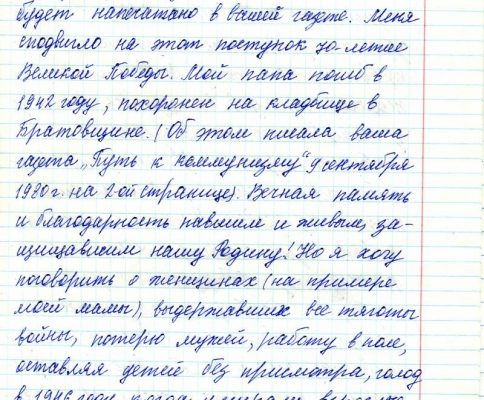 будет напечатано в вашей газете. Меня
сподвигло на этот поступок 70 летие
Великой Победы. Мой папа погиб в
1942 году, похоронен на кладбище в
Братовщине. (Об этом писала ваша
газета „Путь к коммунизму“ 9 сентября
1980 г. на 2-ой странице). Вечная память
и благодарность павшим и живым, за-
щищавшим нашу Родину! Но я хочу
поговорить о женщинах (на примере
моей мамы), выдержавших все тяготы
войны, потерю мужей, работу в поле,
оставляя детей без присмотра, голод
в 1946 году, когда